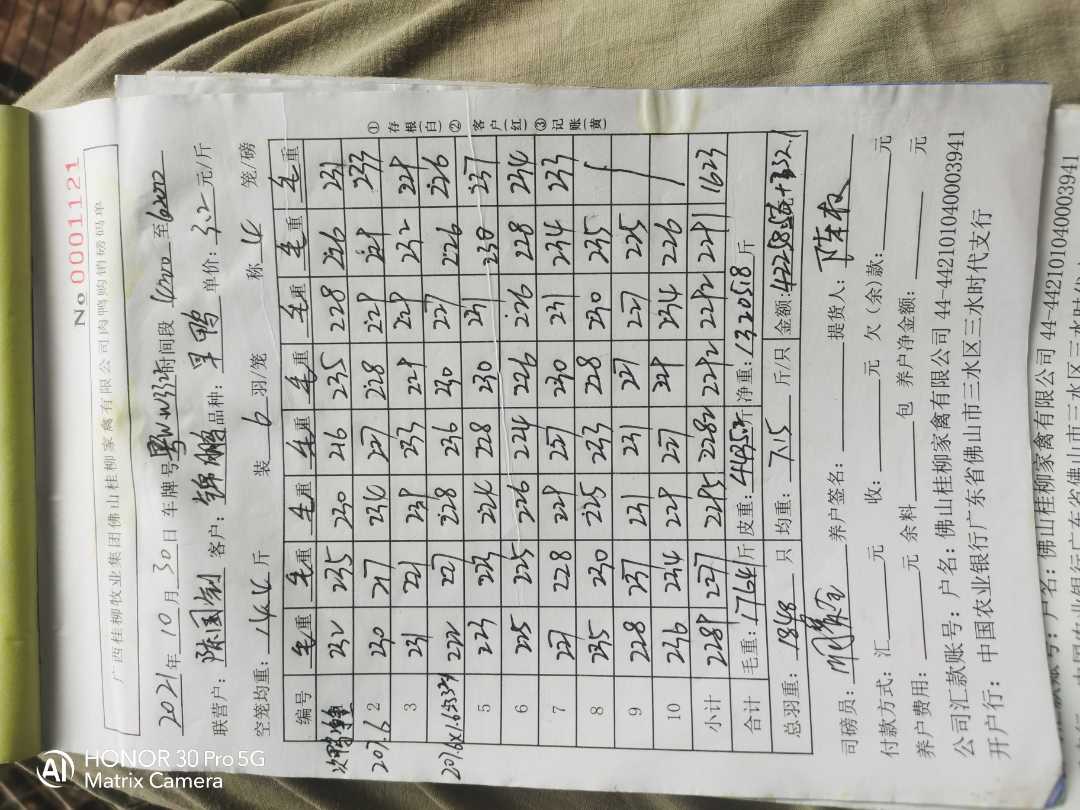 No 0001121
广西桂柳牧业集团佛山桂柳家禽有限公司肉鸭购销磅码单
2021年 10月 30日 车牌号 时间段 至
联营户: 陈国 客户: 锦鹏 品种: 旱鸭 单价: 3.2元/斤
空笼均重: 14.4斤 装 6 羽/笼 称 4 笼/磅
编号 毛重 毛重 毛重 毛重 毛重 毛重 毛重 毛重
232 235 230 216 235 228 226 231
2 230 217 234 227 228 229 229 233
3 231 221 229 233 229 229 232 229
222 227 228 236 230 227 226 226
5 223 223 224 228 230 231 238 237
6 225 225 226 224 226 226 228 234
7 227 228 229 227 230 231 234 233
8 235 230 225 233 228 230 235
9 228 237 231 231 227 227 225
10 236 234 229 227 229 234 226
小计 2289 2277 2285 2282 2292 2292 2299 1623
合计 毛重: 17641斤 皮重: 4435.2斤 净重: 13205.8斤
总羽重: 1848只 均重: 7.15斤/只 金额: 42258.56元+332.1
次鸭
207.6
207.6×1.6
司磅员: 养户签名: 提货人: 陈权
付款方式: 汇 元 收: 元 欠(余)款: 元
养户费用: 元 余料 包 养户净金额: 元
公司汇款账号: 户名: 佛山桂柳家禽有限公司 44-442101040003941
开户行: 中国农业银行广东省佛山市三水区三水时代支行
①存根(白)②客户(红)③记账(黄)
佛山桂柳家禽有限公司 44-442101040003941
HONOR 30 Pro 5G
Matrix Camera
AI